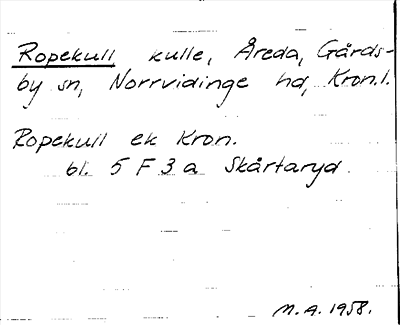 Ropekull kulle, Åreda, Gårds-
by sn, Norrvidinge hd, Kron.l.
Ropekull ek Kron.
bl. 5 F 3 a Skårtaryd.
M.A. 1958.